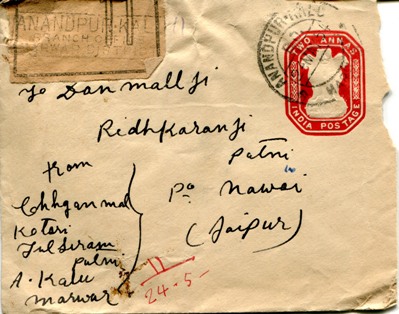 ANANDPUR-KALU
BRANCH OFFICE
ANANDPUR-KALU
TWO ANNAS
INDIA POSTAGE
To Danmallji
Ridhkaranji
Patni
Po Nawai
(Jaipur)
From
Chhganmal
Kotari
Tulsiram
Patni
A. Kalu
Marwar
24.5-